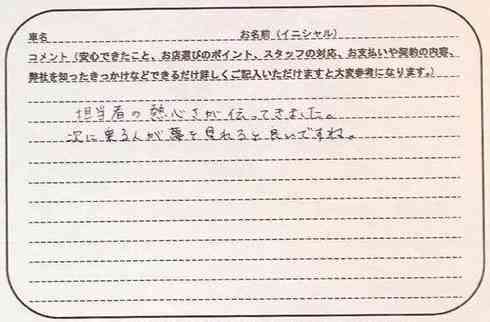 車名 お名前（イニシャル）
コメント（安心できたこと、お店選びのポイント、スタッフの対応、お支払いや契約の内容、
弊社を知ったきっかけなどできるだけ詳しくご記入いただけますと大変参考になります。）
担当者の熱心さが伝ってきました。
次に乗る人が夢を見れると良いですね。